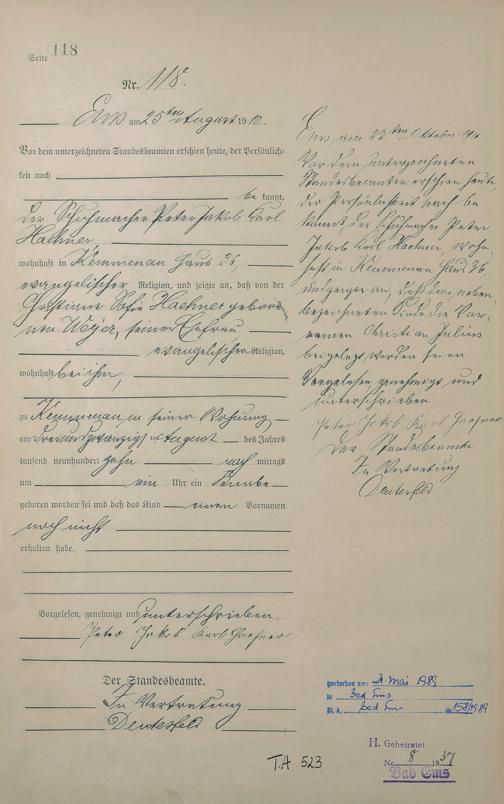 Seite 118
Nr. 118.
Ems am 25ten August 1910.
Vor dem unterzeichneten Standesbeamten erschien heute, der Persönlich-
keit nach
be kannt,
der Schuhmacher Peter Jakob Karl
Haehner,
wohnhaft in Kemmenau Haus 36,
evangelischer Religion, und zeigte an, daß von der
Christiane Sofie Haehner gebore-
nen Weyer, seiner Ehefrau
evangelischer Religion,
wohnhaft bei ihm,
zu Kemmenau in seiner Wohnung
am dreiundzwanzigsten August des Jahres
tausend neunhundert zehn nach mittags
um ein Uhr ein Knabe
geboren worden sei und daß das Kind einen Vornamen
noch nicht
erhalten habe.
Vorgelesen, genehmigt und unterschrieben
Peter Jakob Karl Haehner
Der Standesbeamte.
In Vertretung
Deutesfeld
Ems, am 22ten Oktober 1910
Vor dem unterzeichneten
Standesbeamten erschien heute,
der Persönlichkeit nach be
kannt, der Schuhmacher Peter
Jakob Karl Haehner, wohn-
haft in Kemmenau Haus 36,
und zeigte an, daß dem neben
bezeichneten Kinde die Vor-
namen Christian Julius
beigelegt worden seien.
Vorgelesen, genehmigt und
unterschrieben
Peter Jakob Karl Haehner
Der Standesbeamte
In Vertretung
Deutesfeld
gestorben am: Mai 1989
in Bad Ems
St. A. Bad Ems Nr. 158/1989
H. Geheiratet
Nr. 8 1937
Bad Ems
T.A 523